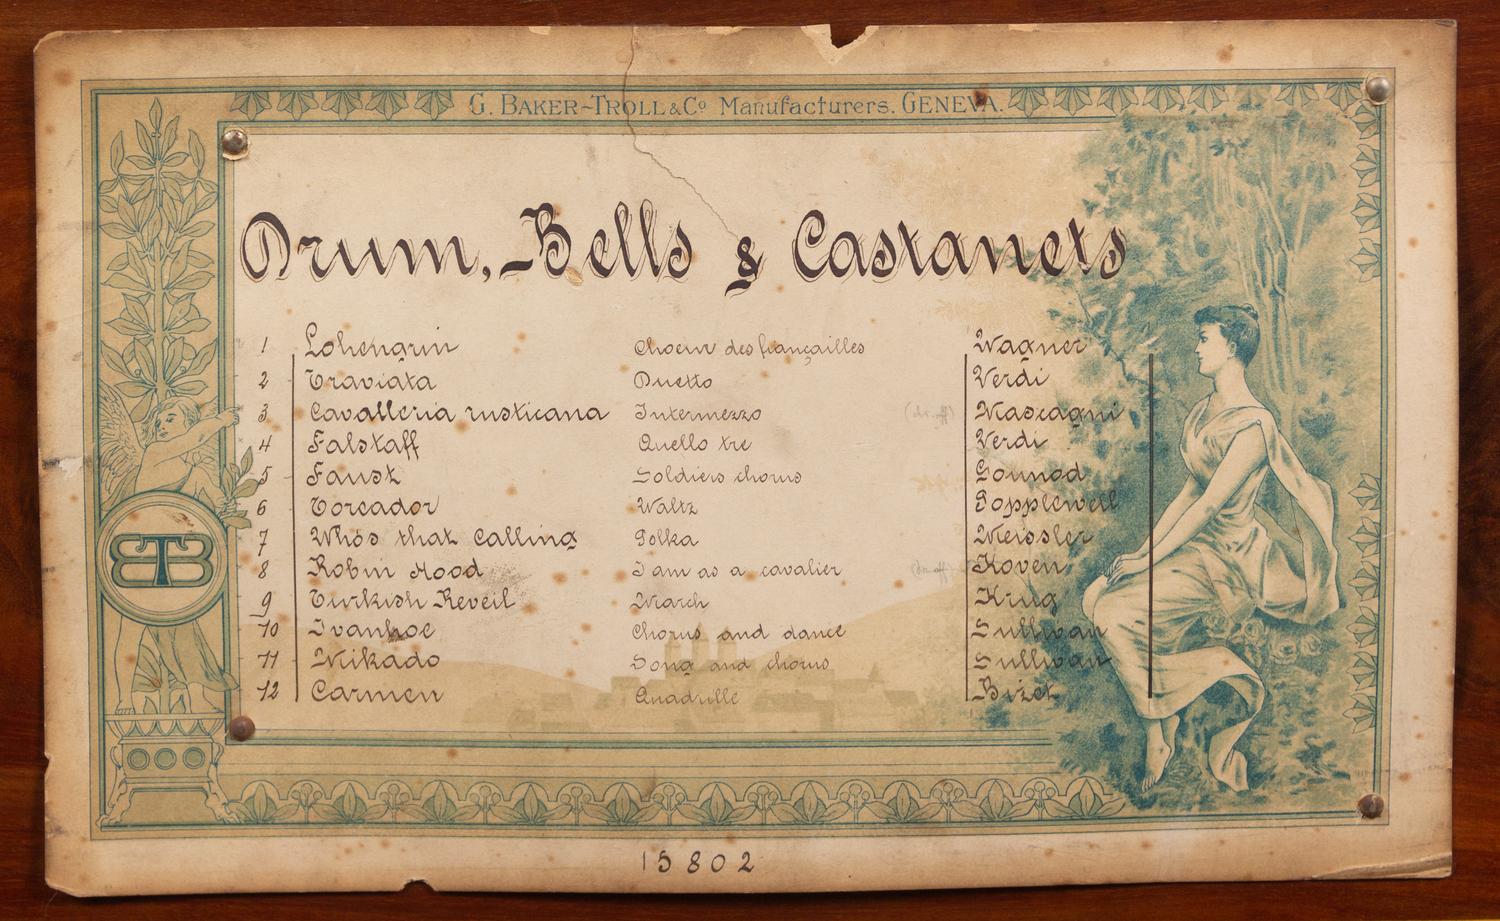 G. BAKER-TROLL & Co Manufacturers. GENEVA.
Drum, Bells & Castanets
1 Lohengrin Choeur des françailles Wagner
2 Traviata Duetto Verdi
3 Cavalleria rusticana Intermezzo Mascagni
4 Falstaff Quello tre Verdi
5 Faust Soldiers chorus Gounod
6 Toreador Waltz Popplewell
7 Who's that calling Polka Meissler
8 Robin Hood I am as a cavalier Koven
9 Turkish Reveil March Krug
10 Ivanhoe Chorus and dance Sullivan
11 Mikado Song and chorus Sullivan
12 Carmen Quadrille Bizet
BTB
15802